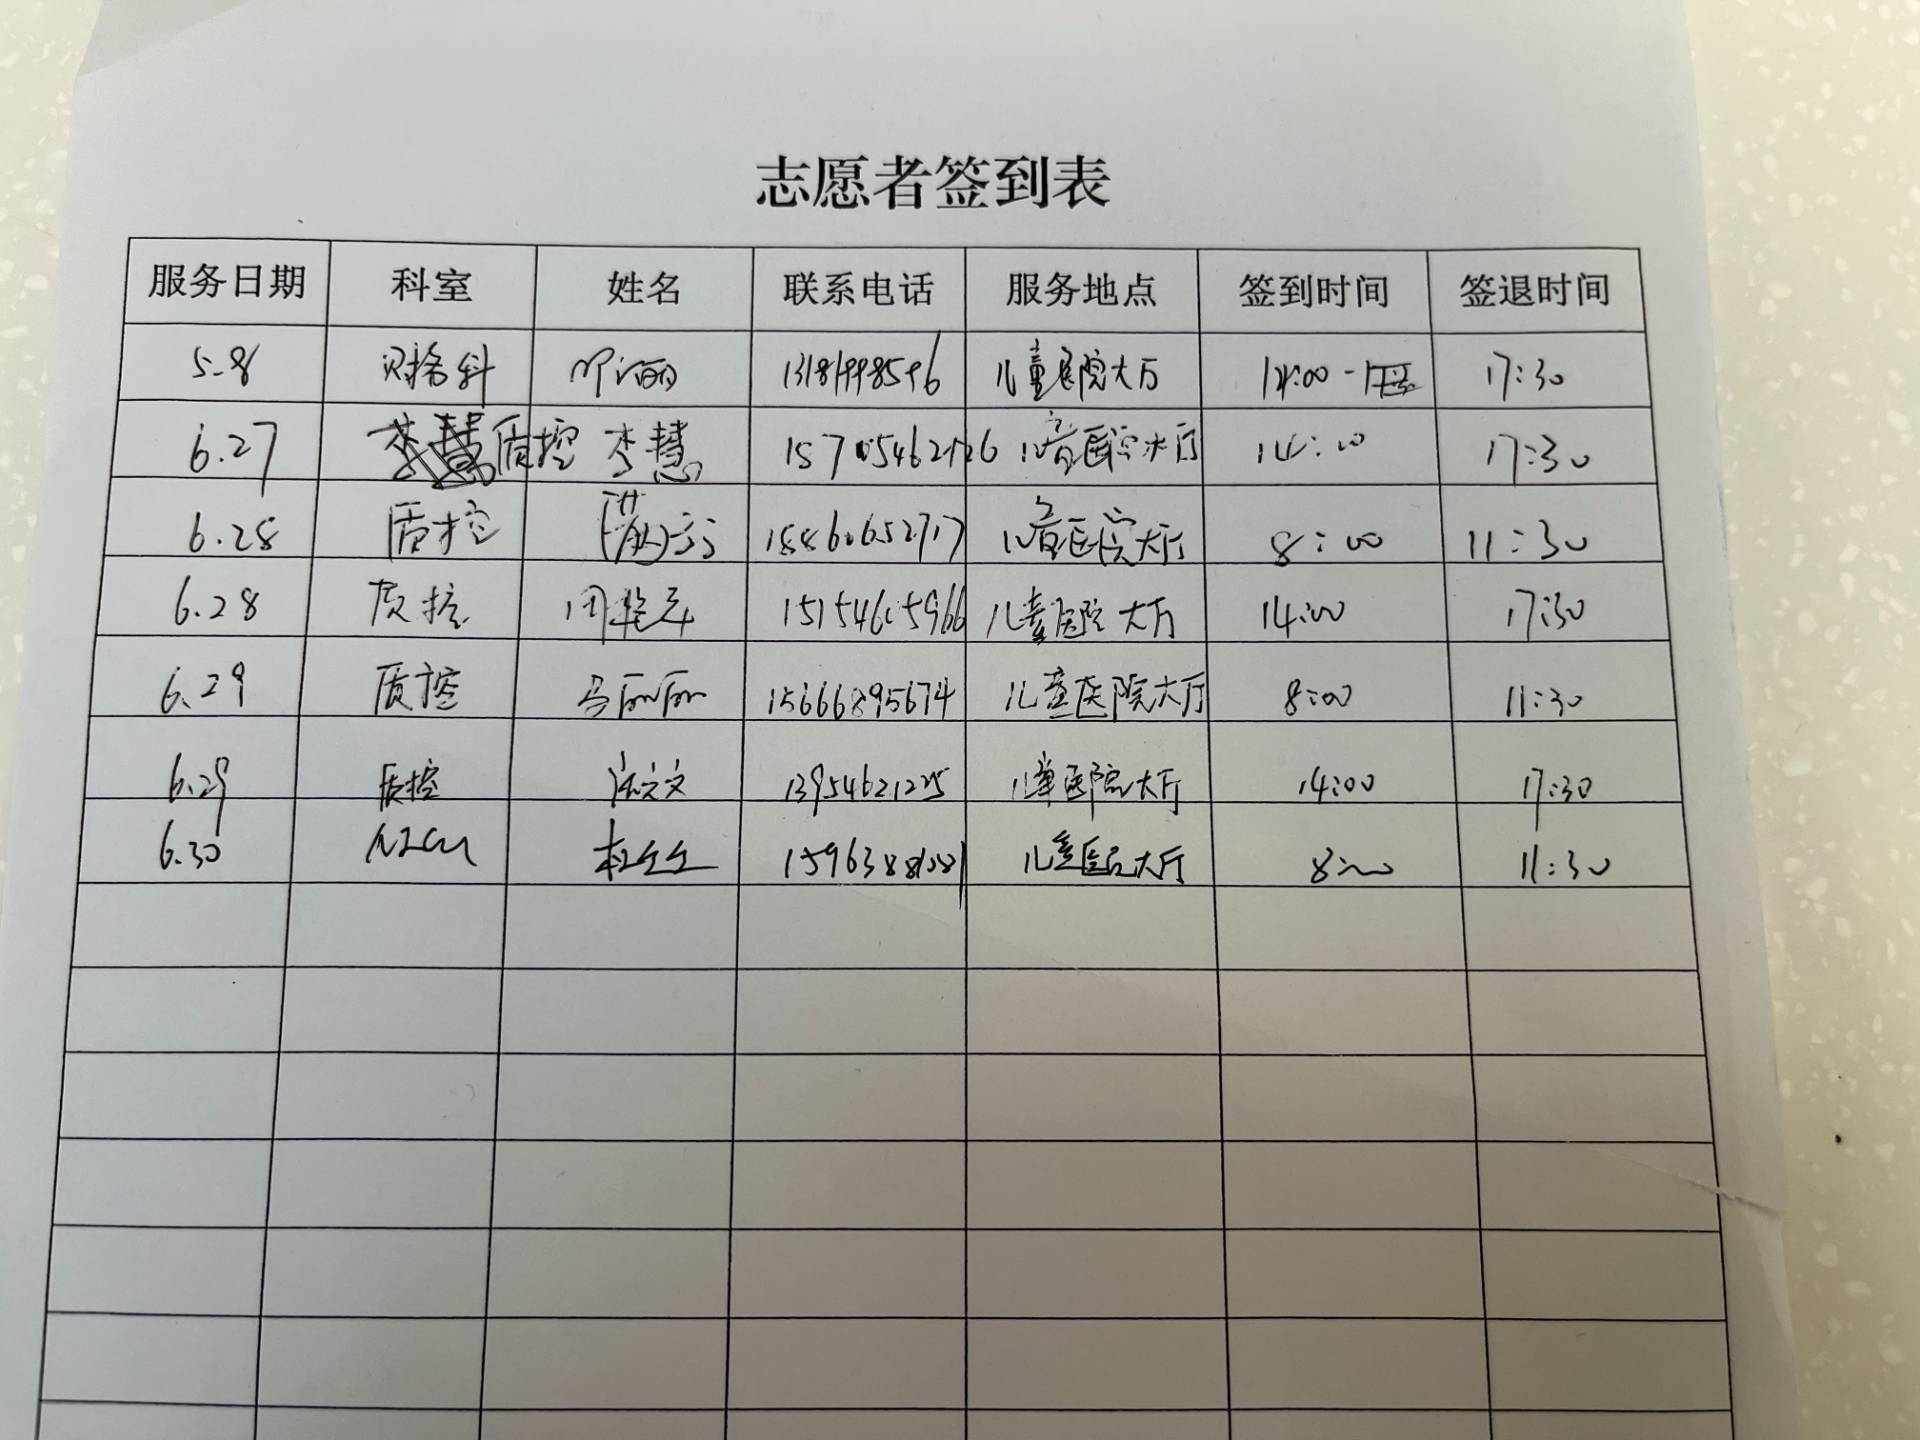 志愿者签到表
服务日期 科室 姓名 联系电话 服务地点 签到时间 签退时间
5.8 财务科 儿童医院大厅 14:00 17:30
6.27 质控 李慧 儿童医院大厅 14:00 17:30
6.28 质控 儿童医院大厅 8:00 11:30
6.28 质控 儿童医院大厅 14:00 17:30
6.29 质控 马丽丽 15666895674 儿童医院大厅 8:00 11:30
6.29 质控 13954621225 儿童医院大厅 14:00 17:30
6.30 杜丝丝 儿童医院大厅 8:00 11:30